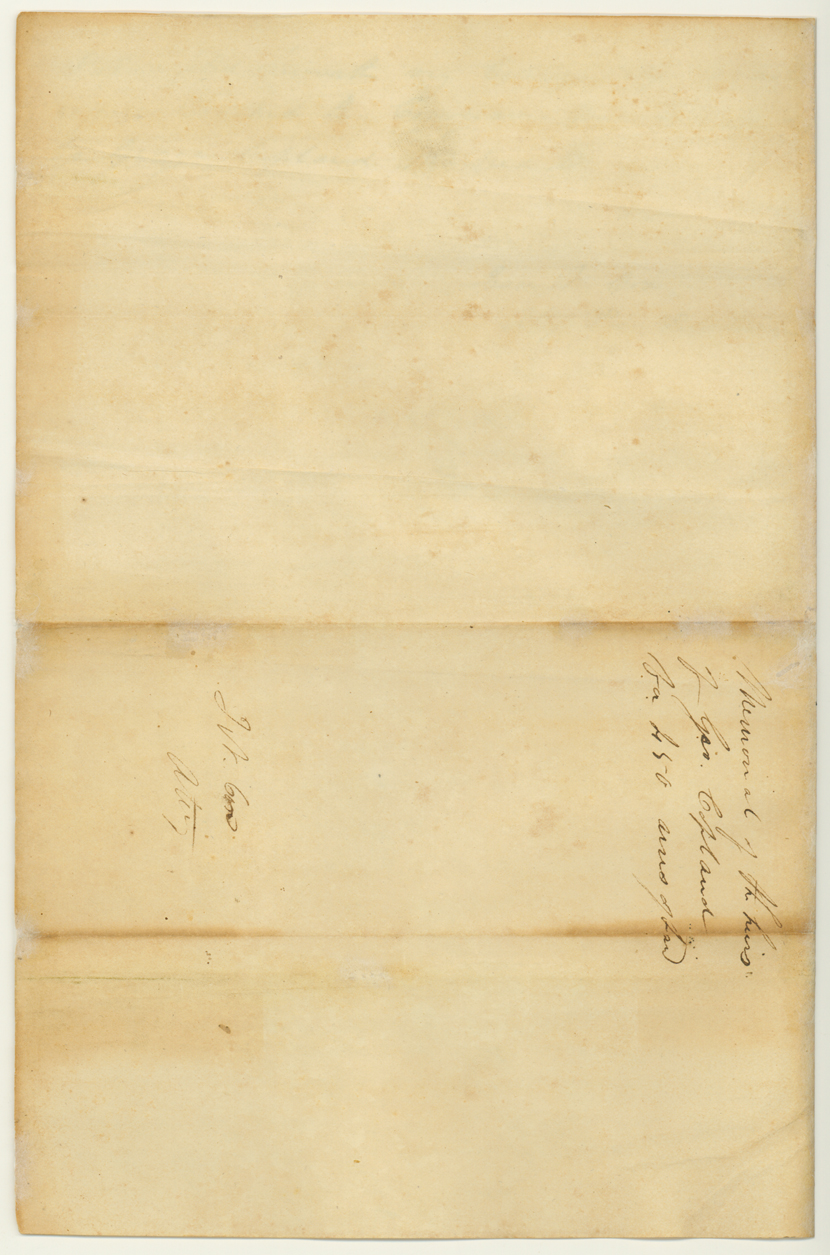 Memorial of the heirs
of Geo. Copland
For 450 acres of Land
Atty